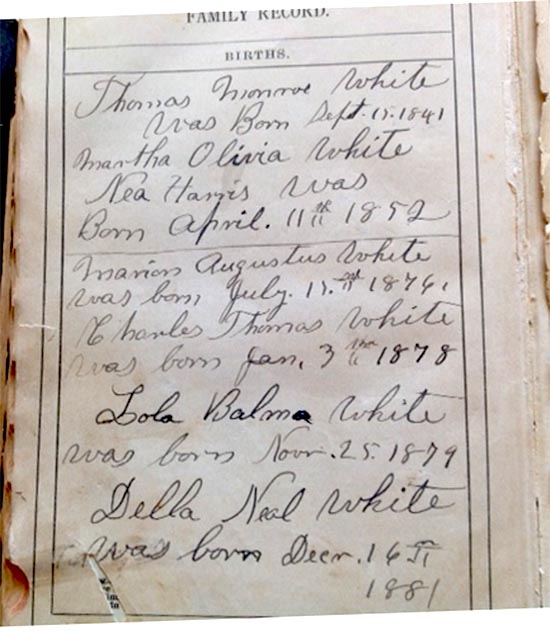 FAMILY RECORD.
BIRTHS.
Thomas Monroe White
was Born Sept. 15. 1841
Martha Olivia White
Nea Harris was
Born April. 11th 1852
Marion Augustus White
was born July. 1876.
Charles Thomas White
was born Jan, 3 1878
Lola Balma White
was born Novr. 25. 1879
Della Neal White
was born Decr. 16th
1881